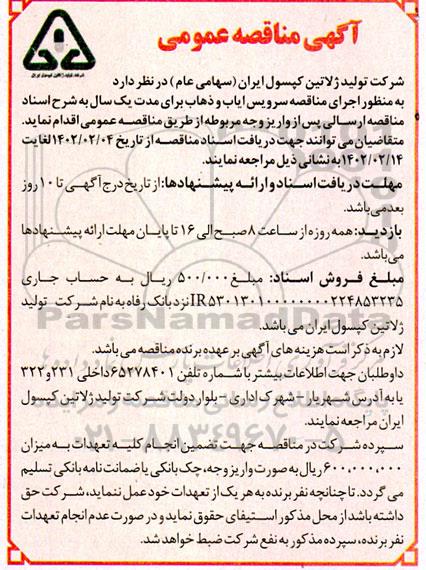 آگهی مناقصه عمومی
شرکت تولید ژلاتین کپسول ایران
شرکت تولید ژلاتین کپسول ایران (سهامی عام) در نظر دارد
به منظور اجرای مناقصه سرویس ایاب و ذهاب برای مدت یک سال به شرح اسناد
مناقصه ارسالی پس از واریز وجه مربوطه از طریق مناقصه عمومی اقدام نماید.
متقاضیان می توانند جهت دریافت اسناد مناقصه از تاریخ ۱۴۰۲/۰۲/۰۴ لغایت
۱۴۰۲/۰۲/۱۴ به نشانی ذیل مراجعه نمایند.
مهلت دریافت اسناد و ارائه پیشنهادها: از تاریخ درج آگهی تا ۱۰ روز
بعد می باشد.
بازدید: همه روزه از ساعت ۸ صبح الی ۱۶ تا پایان مهلت ارائه پیشنهادها
می باشد.
مبلغ فروش اسناد: مبلغ ۵۰۰/۰۰۰ ریال به حساب جاری
IR۵۳۰۱۳۰۱۰۰۰۰۰۰۰۰۰۲۲۴۸۵۳۲۳۵ نزد بانک رفاه به نام شرکت تولید
ژلاتین کپسول ایران می باشد.
لازم به ذکر است هزینه های آگهی بر عهده برنده مناقصه می باشد.
داوطلبان جهت اطلاعات بیشتر با شماره تلفن ۶۵۲۷۸۴۰۱ داخلی ۲۳۱ و ۳۲۲
یا به آدرس شهریار - شهرک اداری - بلوار دولت شرکت تولید ژلاتین کپسول
ایران مراجعه نمایند.
سپرده شرکت در مناقصه جهت تضمین انجام کلیه تعهدات به میزان
۶۰۰,۰۰۰,۰۰۰ ریال به صورت واریز وجه، چک بانکی یا ضمانت نامه بانکی تسلیم
می گردد. تا چنانچه نفر برنده به هر یک از تعهدات خود عمل ننماید، شرکت حق
داشته باشد از محل مذکور استیفای حقوق نماید و در صورت عدم انجام تعهدات
نفر برنده، سپرده مذکور به نفع شرکت ضبط خواهد شد.
ParsNamadData
۰۲۱-۸۸۳۴۹۶۷۰-۵